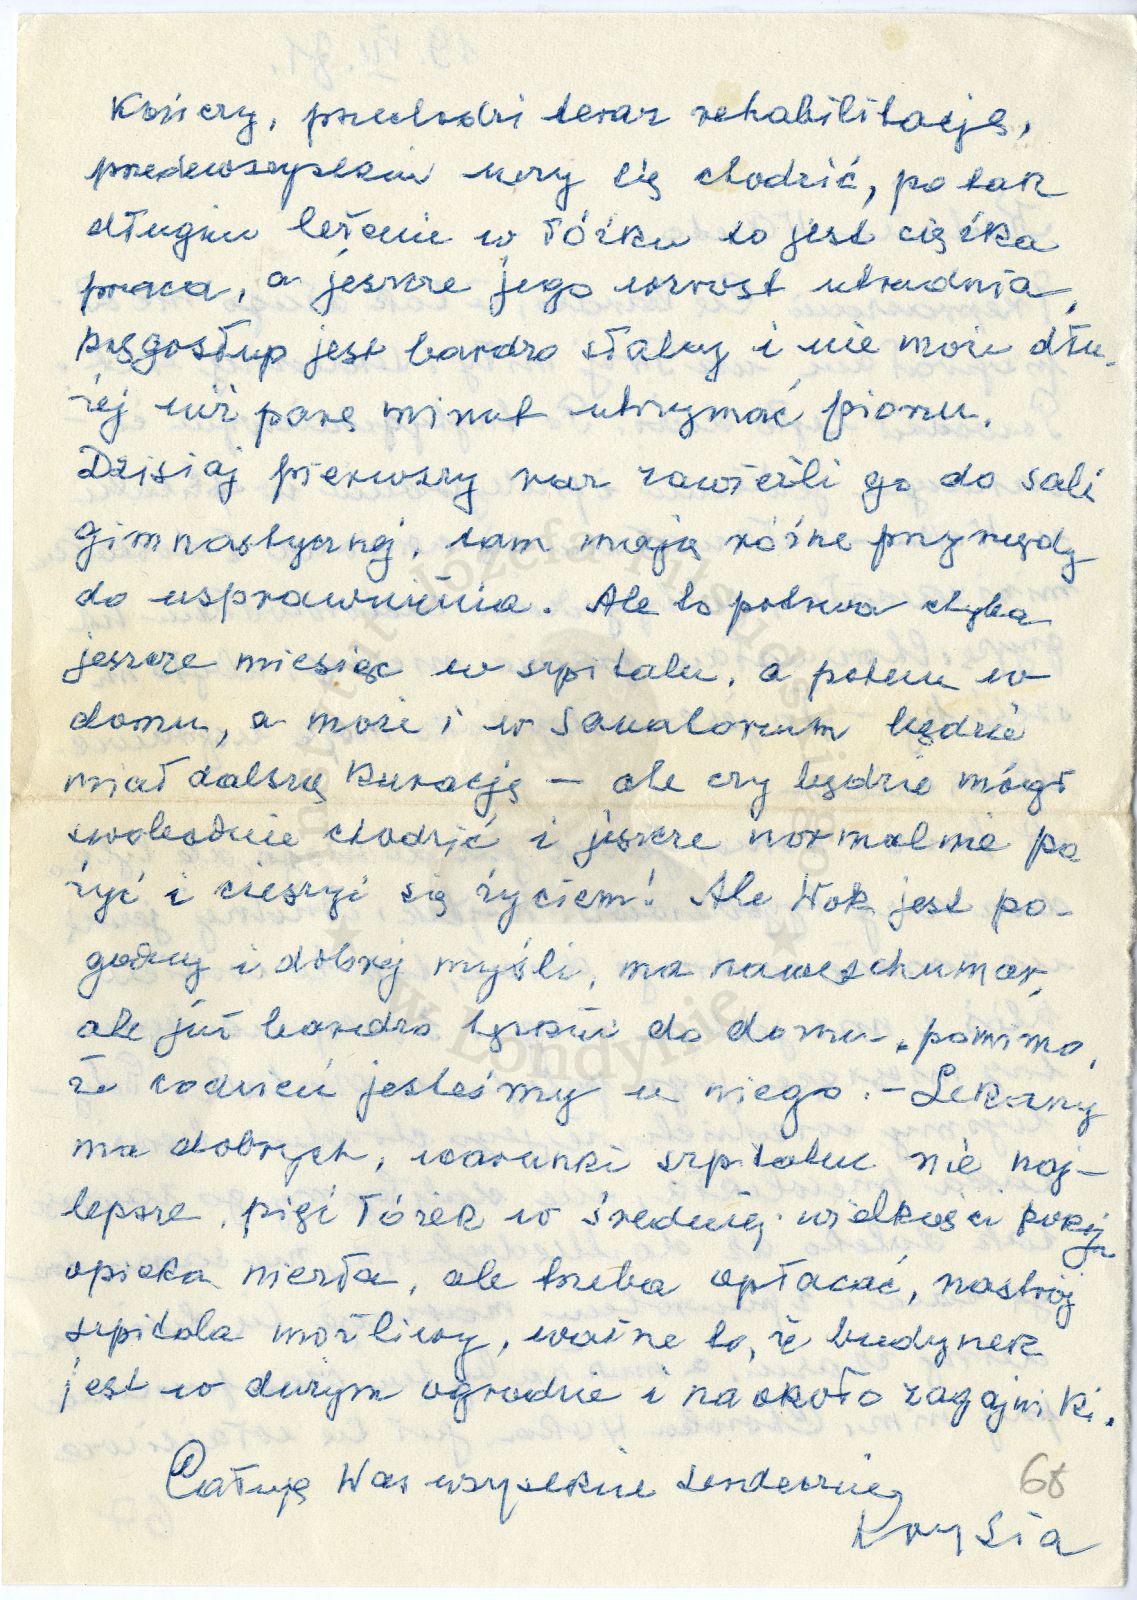 kończy, przechodzi teraz rehabilitację,
przedewszystkim uczy się chodzić, po tak
długim leżeniu w łóżku to jest ciężka
praca, a jeszcze jego wzrost utrudnia,
kręgosłup jest bardzo słaby i nie może dłu-
żej niż parę minut utrzymać pionu.
Dzisiaj pierwszy raz zawieźli go do sali
gimnastycznej, tam mają różne przyrządy
do usprawnienia. Ale to potrwa chyba
jeszcze miesiąc w szpitalu, a potem w
domu, a może i w sanatorium będzie
miał dalszą kurację – ale czy będzie mógł
swobodnie chodzić i jeszcze normalnie po
żyć i cieszyć się życiem! Ale Wok jest po-
godny i dobrej myśli, ma nawet humor,
ale już bardzo tęskni do domu, pomimo,
że codzień jesteśmy u niego. – Lekarzy
ma dobrych, warunki szpitalne nie naj-
lepsze, pięć łóżek w średniej wielkości pokoju
opieka niezła, ale trzeba opłacać, nastrój
szpitala możliwy, ważne to, że budynek
jest w dużym ogrodzie i naokoło zagajniki.
Całuję Was wszystkie serdecznie
Krysia
68
Instytut Józefa Piłsudskiego
★ w Londynie ★